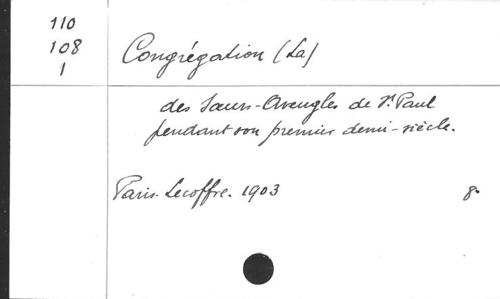 110
108
1
Congrégation (La)
des Sœurs-Aveugles de St. Paul
pendant son premier demi-siècle.
Paris. Lecoffre. 1903 8º